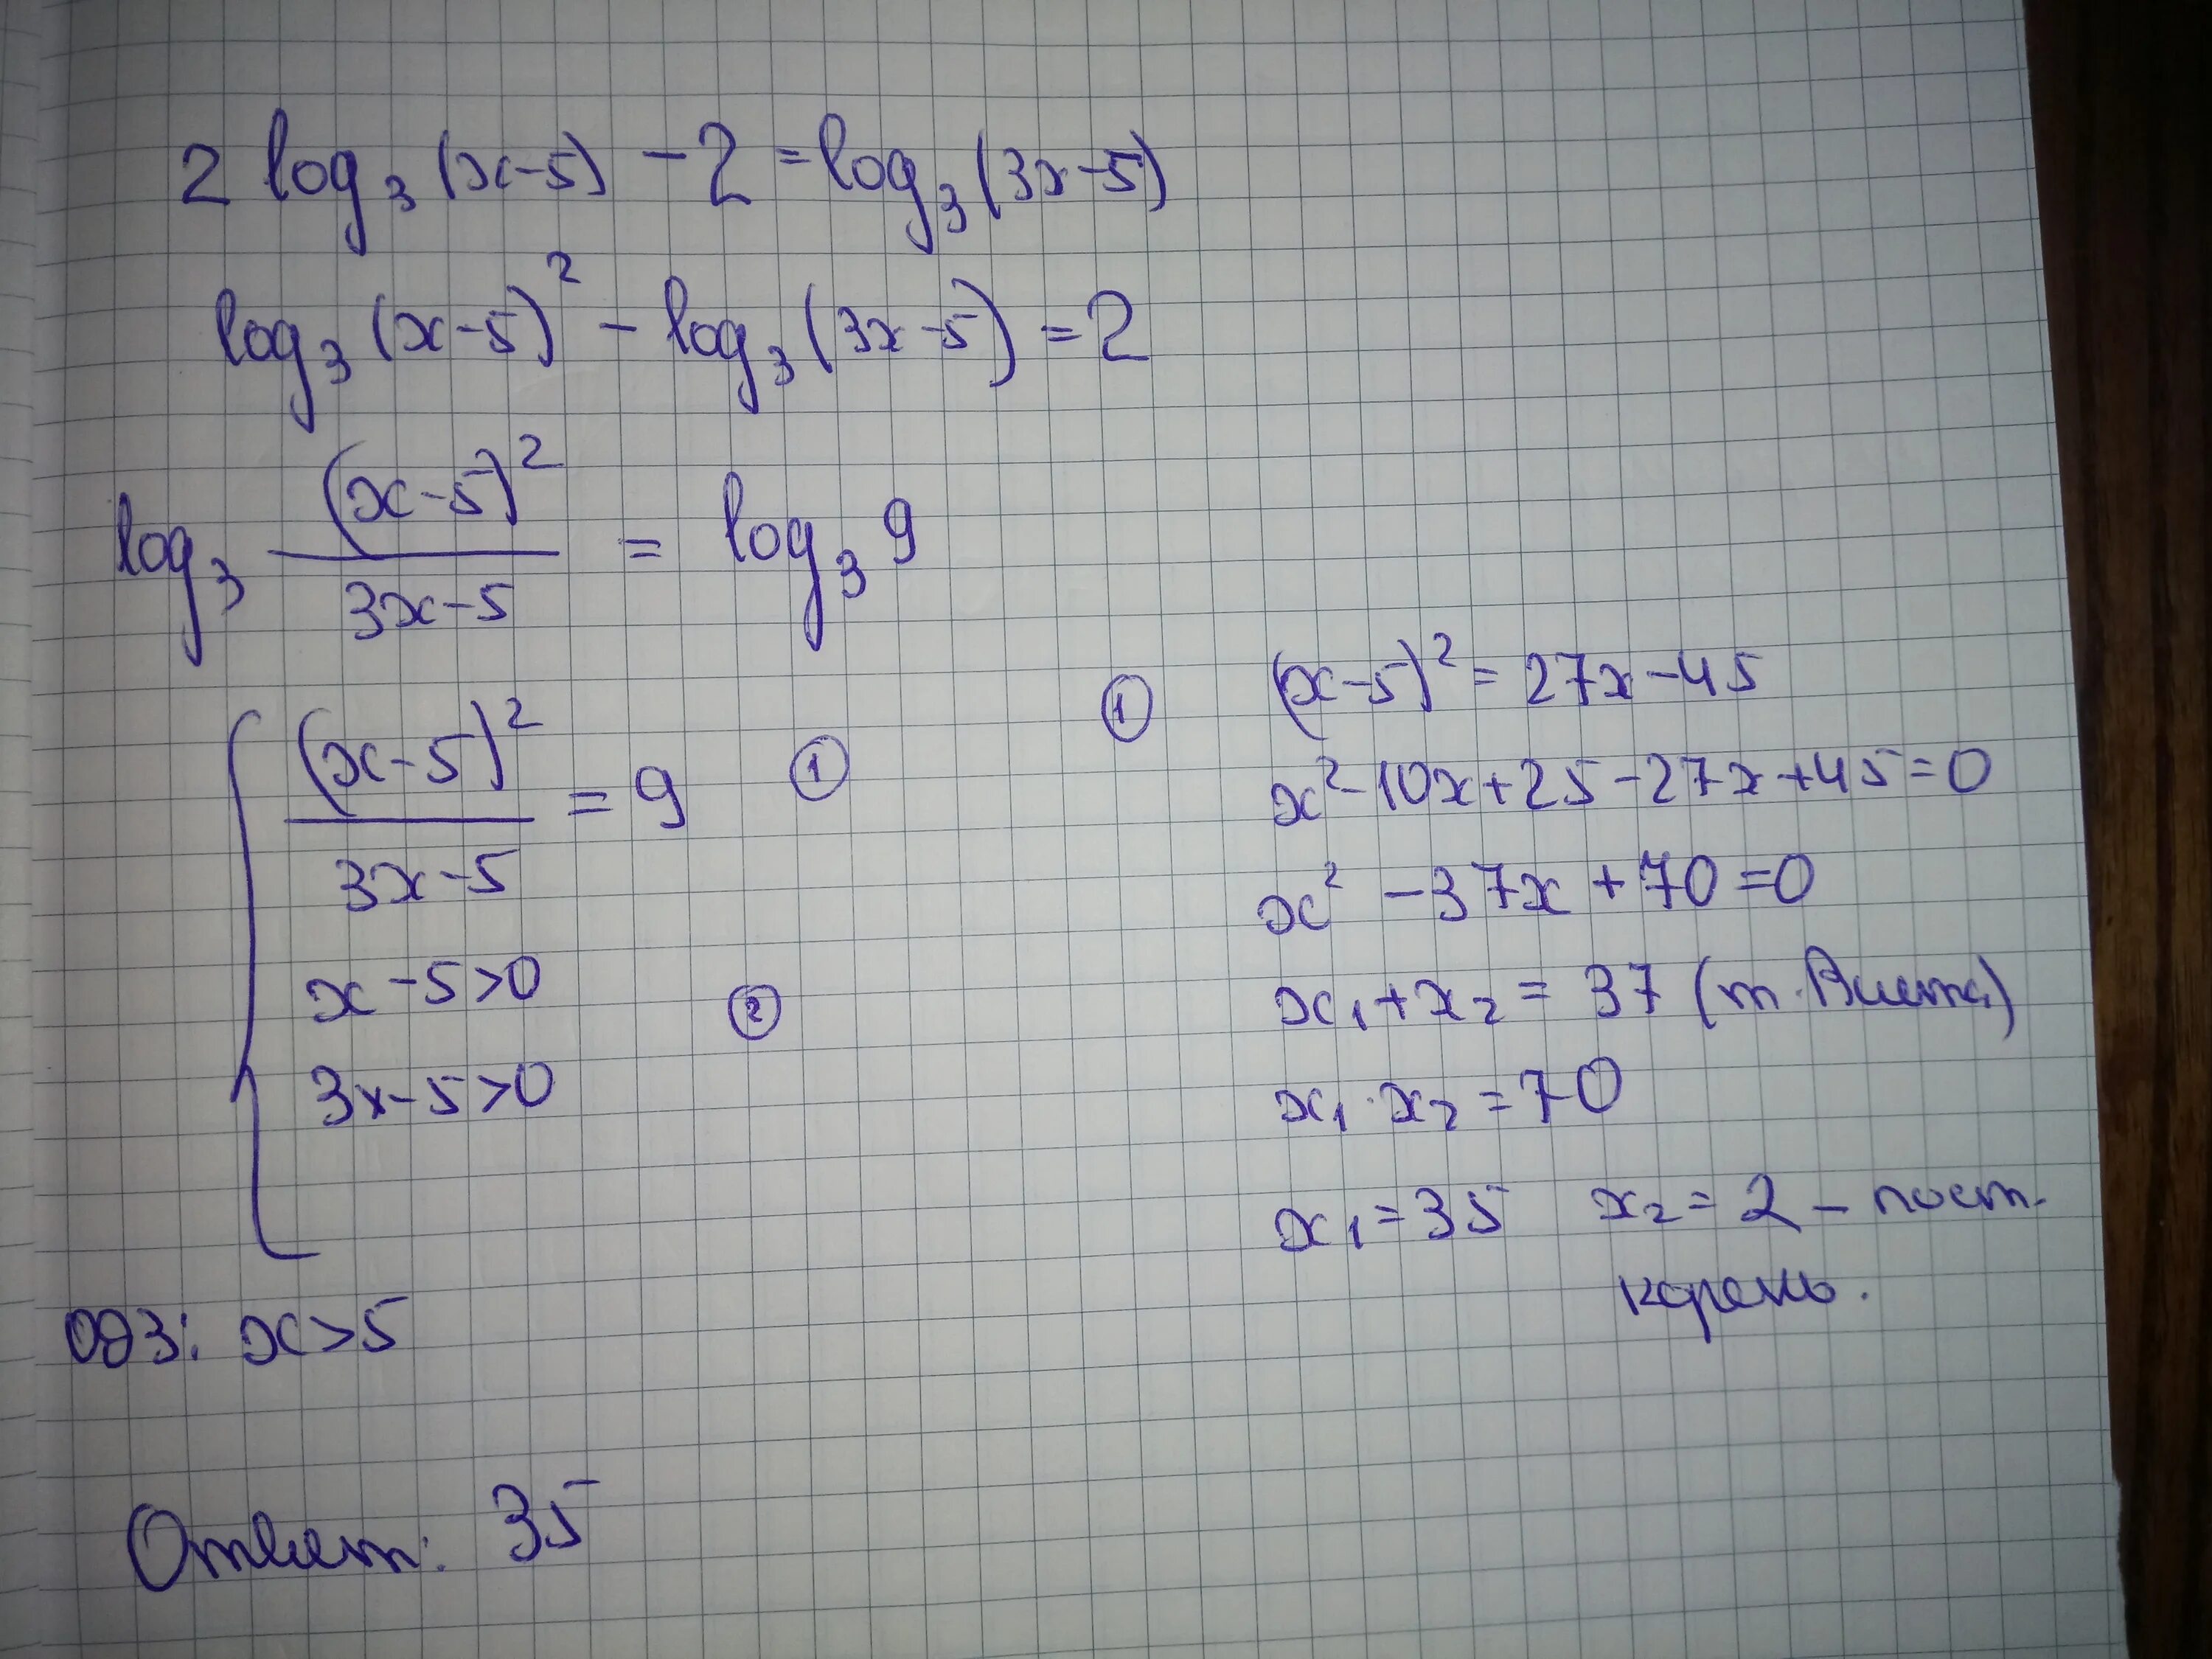 2 log₃(x-5) - 2 = log₃(3x-5)
log₃(x-5)² - log₃(3x-5) = 2
log₃ (x-5)²/(3x-5) = log₃ 9
{ (x-5)²/(3x-5) = 9 ①
x-5>0 ②
3x-5>0
ОДЗ: x>5
① (x-5)² = 27x-45
x²-10x+25-27x+45=0
x² -37x +70 =0
x₁+x₂ = 37 (т. Виета)
x₁·x₂ = 70
x₁ = 35 x₂ = 2 - пост.
корень.
Ответ: 35